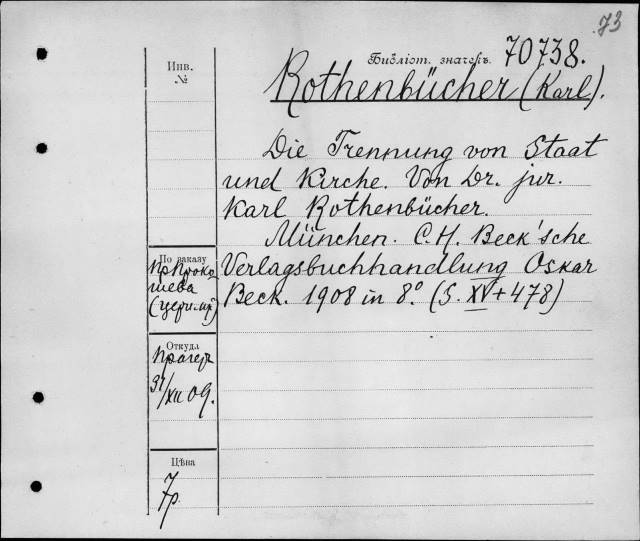 73
Библіот. значекъ 70738.
Инв.
№
Rothenbücher (Karl).
Die Trennung von Staat
und Kirche. Von Dr. jur.
Karl Rothenbücher.
München. C. H. Beck'sche
Verlagsbuchhandlung Oskar
Beck. 1908 in 8.° (S. XV+478)
По заказу
Пр. Проко-
шева
Откуда
/XII 09.
Цѣна
7р